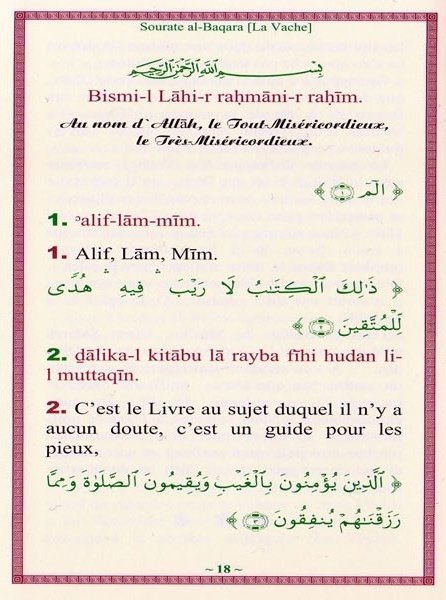 Sourate al-Baqara [La Vache]
بِسْمِ اللَّهِ الرَّحْمَٰنِ الرَّحِيمِ
Bismi-l Lāhi-r raḥmāni-r raḥīm.
Au nom d`Allāh, le Tout-Miséricordieux,
le Très-Miséricordieux.
﴿ الٓمٓ ﴾ ١
1. ᵓalif-lām-mīm.
1. Alif, Lām, Mīm.
﴿ ذَٰلِكَ ٱلْكِتَٰبُ لَا رَيْبَ ۛ فِيهِ ۛ هُدًى
لِّلْمُتَّقِينَ ﴾ ٢
2. ḏālika-l kitābu lā rayba fīhi hudan li-
l muttaqīn.
2. C’est le Livre au sujet duquel il n’y a
aucun doute, c’est un guide pour les
pieux,
﴿ ٱلَّذِينَ يُؤْمِنُونَ بِٱلْغَيْبِ وَيُقِيمُونَ ٱلصَّلَوٰةَ وَمِمَّا
رَزَقْنَٰهُمْ يُنفِقُونَ ﴾ ٣
~ 18 ~